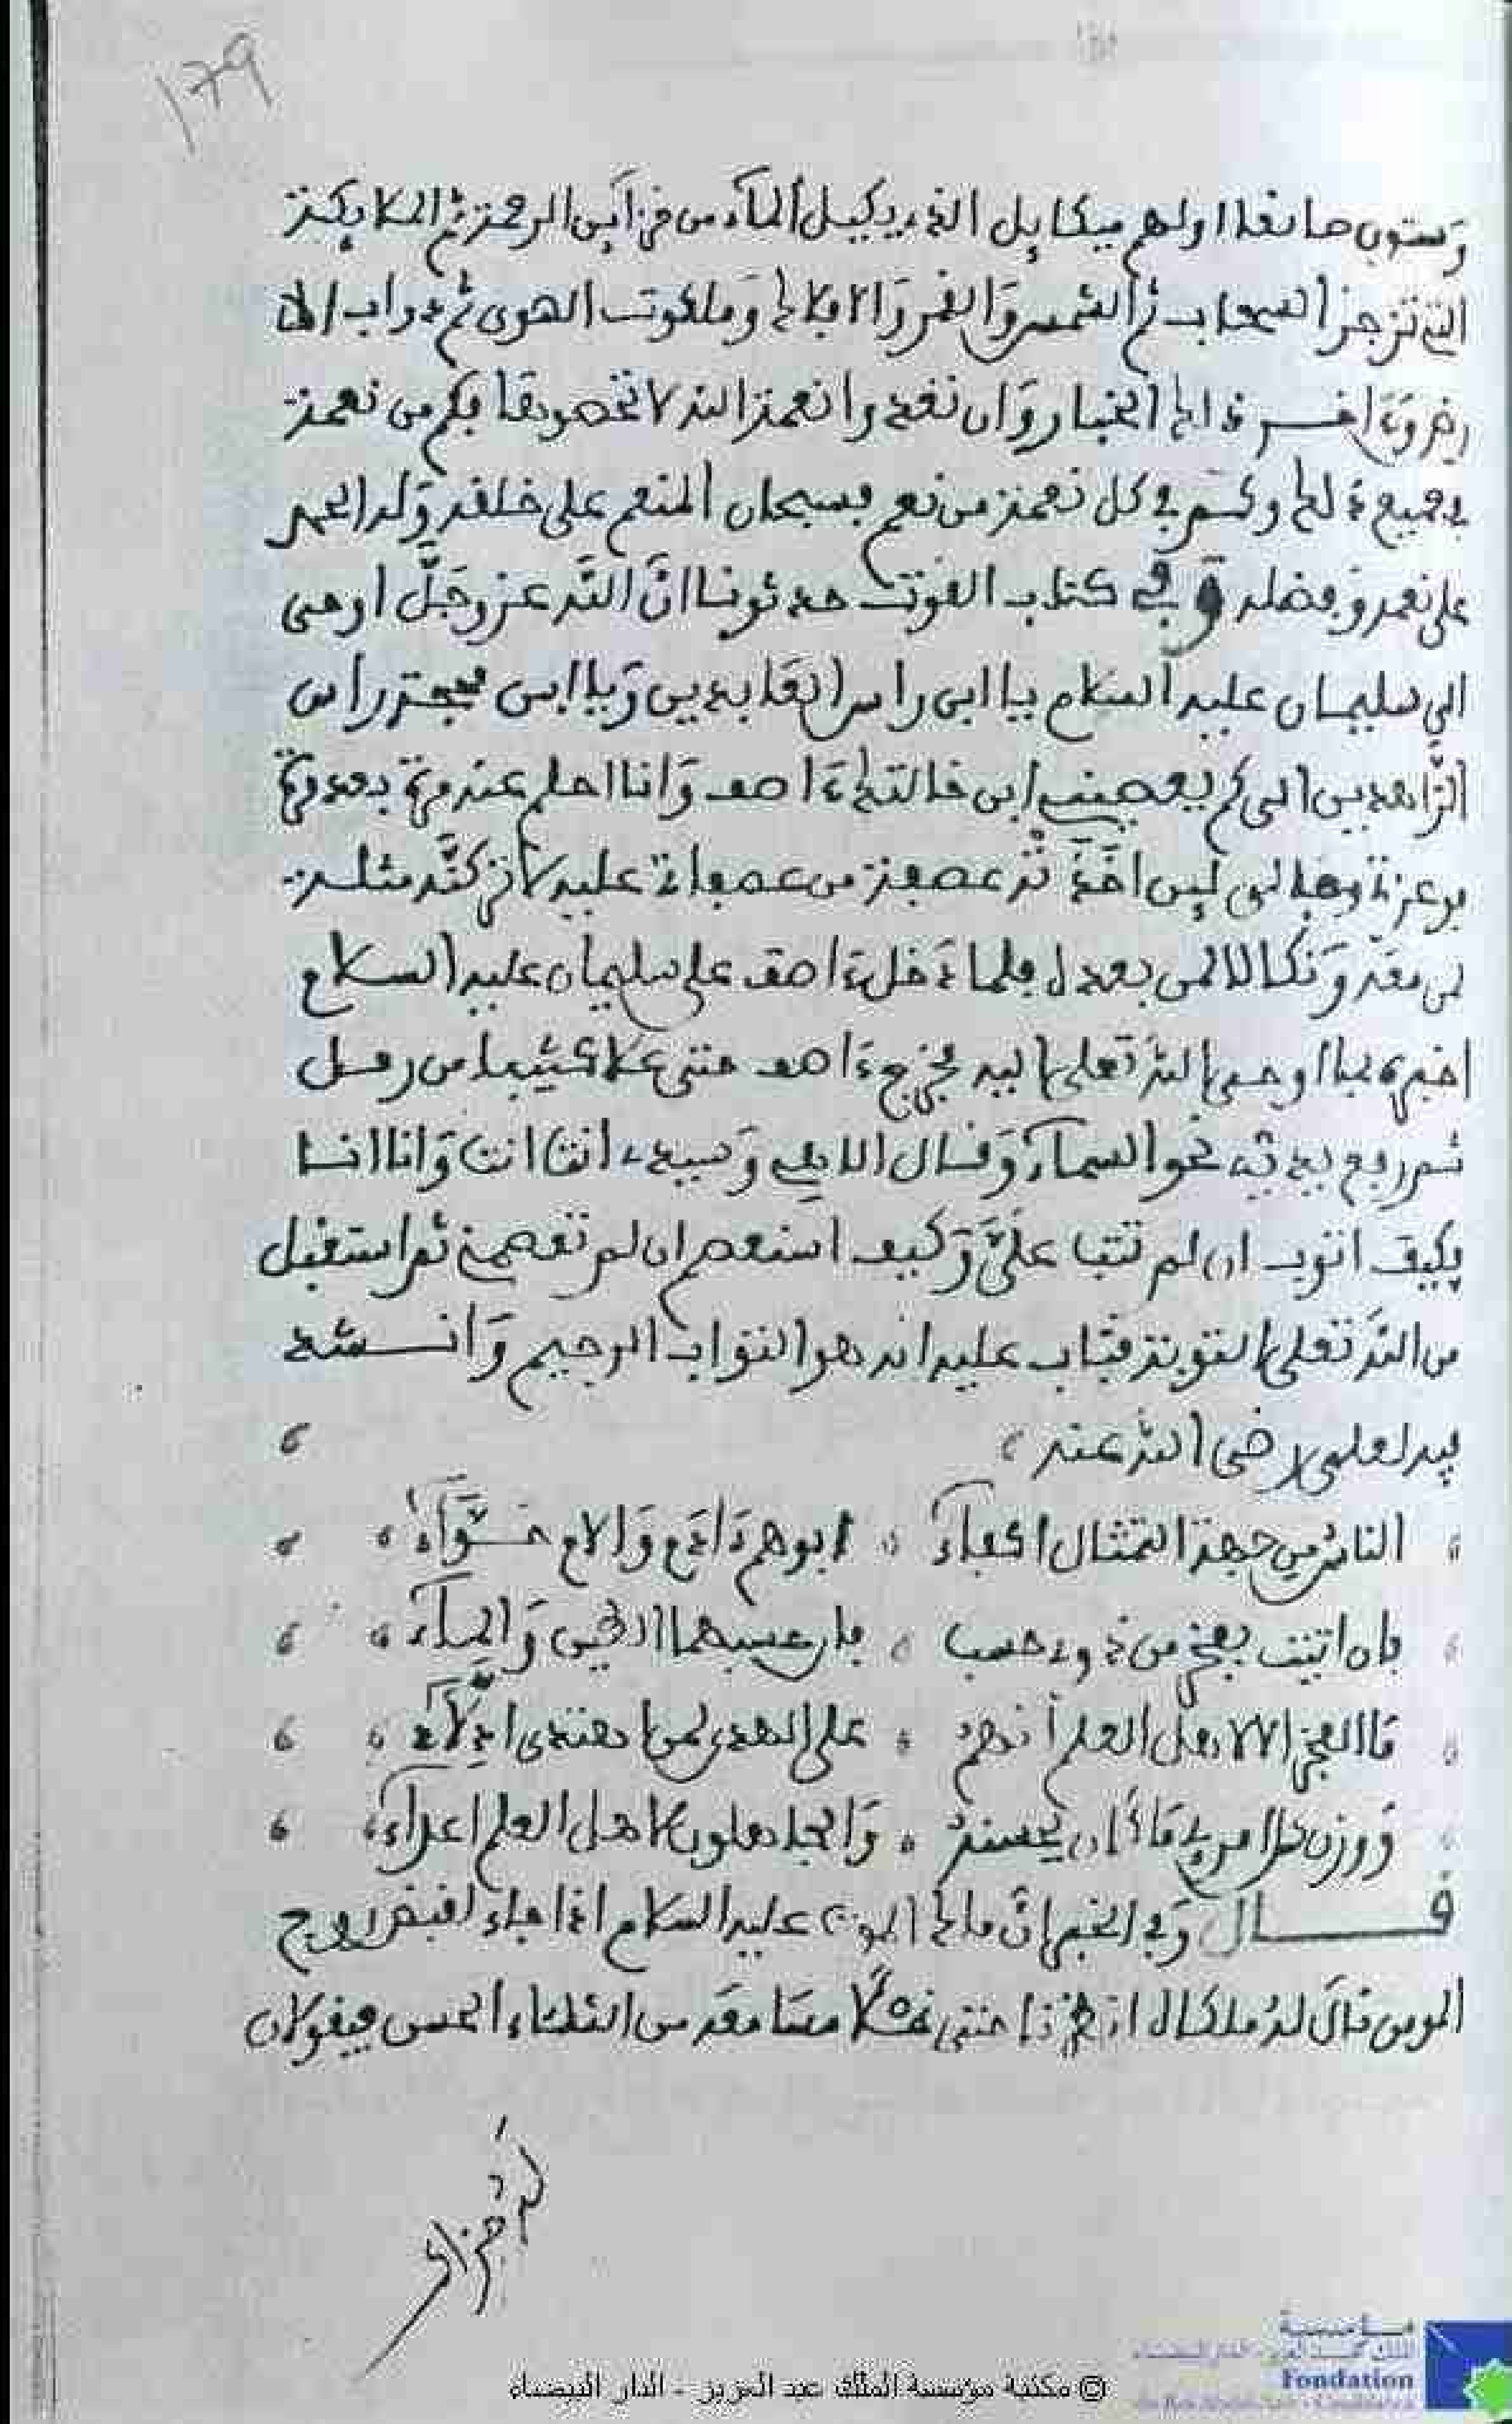 179
وستون صانعا اولهم ميكايل الذي يكيل الماء من خزاين الرحمة ثم الملايكة
التي تزجر السحاب ثم الشمس والقمر والافلاك وملكوت الهوى ثم دواب الا
رض وءاخر ذلك الخباز وان تعدوا نعمة الله لا تحصوها فكم من نعمة
في جميع ذلك وكم في كل نعمة من نعم فسبحان المنعم على خلقه وله الحمد
على نعمه وفضله وفي كتاب القوت حدثونا ان الله عز وجل اوحى
الى سليمان عليه السلام يا ابن راس العابدين ويا ابن محجة راس
الزاهدين الى كم يعصيني ابن خالتك ءاصف وانا احلم عنه مرة بعد مرة
فوعزتي وجلالي لين اخذته عصفة من عصفاتي عليه لاتركنه مثلة
لمن معه ونكالا لمن بعده فلما دخل ءاصف على سليمان عليه السلام
اخبره بما اوحى الله تعلى اليه فخرج ءاصف حتى علا كثيبا من رمل
ثم رفع يديه نحو السماء وقال الاهي وسيدي انت انت وانا انا
فكيف اتوب ان لم تتب علي وكيف استعصم ان لم تعصمني ثم استقبل
من الله تعلى التوبة فتاب عليه انه هو التواب الرحيم وانشد
فيه لعلي رضي الله عنه
الناس من جهة التمثال اكفاء ابوهم ءادم والام حواء
فان اتيت بفخر من ذوي حسب فان حسبهما الطين والماء
ما الفخر الا لاهل العلم انهم على الهدى لمن اهتدى ادلاء
ووزن كل امرئ ما كان يحسنه والجاهلون لاهل العلم اعداء
قال وفي الخبر ان ملك الموت عليه السلام اذا جاء لقبض روح
المومن قال له ملكاه انظرنا حتى نملا مسامعه من الثناء الحسن فيقولان
جزاك
© مكتبة مؤسسة الملك عبد العزيز - الدار البيضاء
مؤسسة
الملك عبد العزيز الدار البيضاء
Fondation